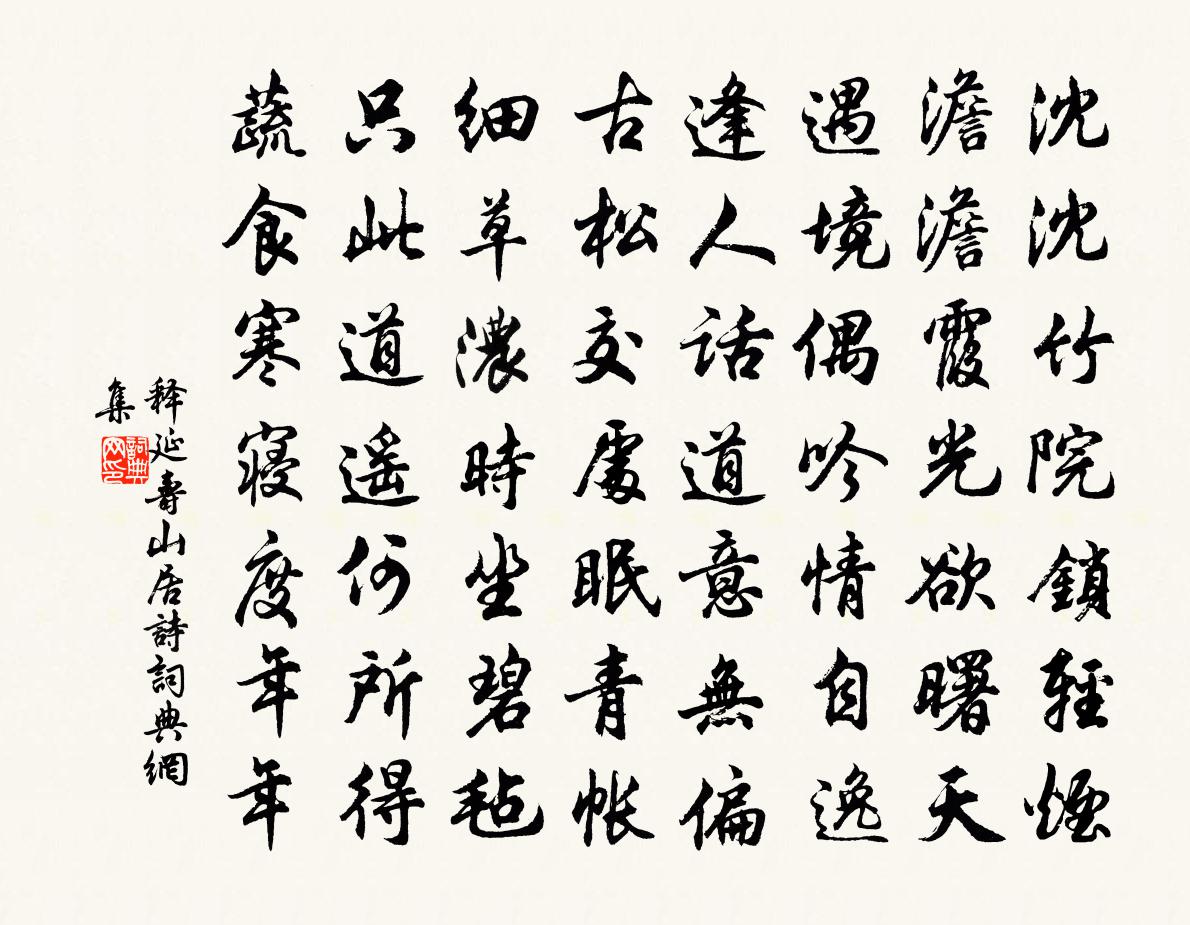 沈沈竹院鎖輕煙
澹澹霞光欲曙天
遇境偶吟情自逸
逢人話道意無偏
古松交處眠青帳
细草濃時坐碧毡
只此道遥何所得
蔬食寒寝度年年
释延壽山居詩詞典網
集
詞典
网印